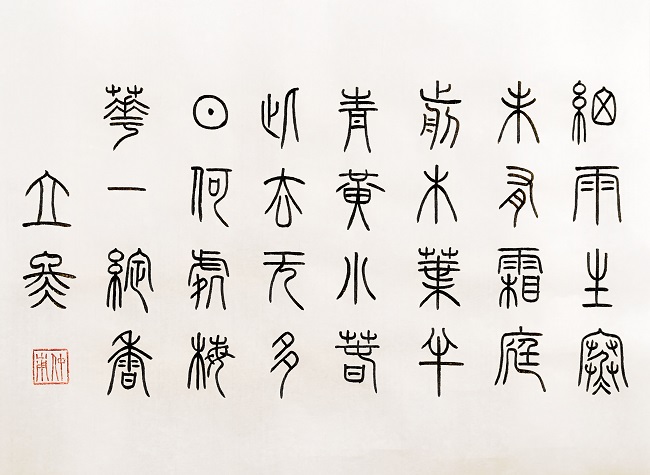 細雨生寒
未有霜庭
前木葉半
青黃小春
此去无多
日何處梅
華一綻香
立冬